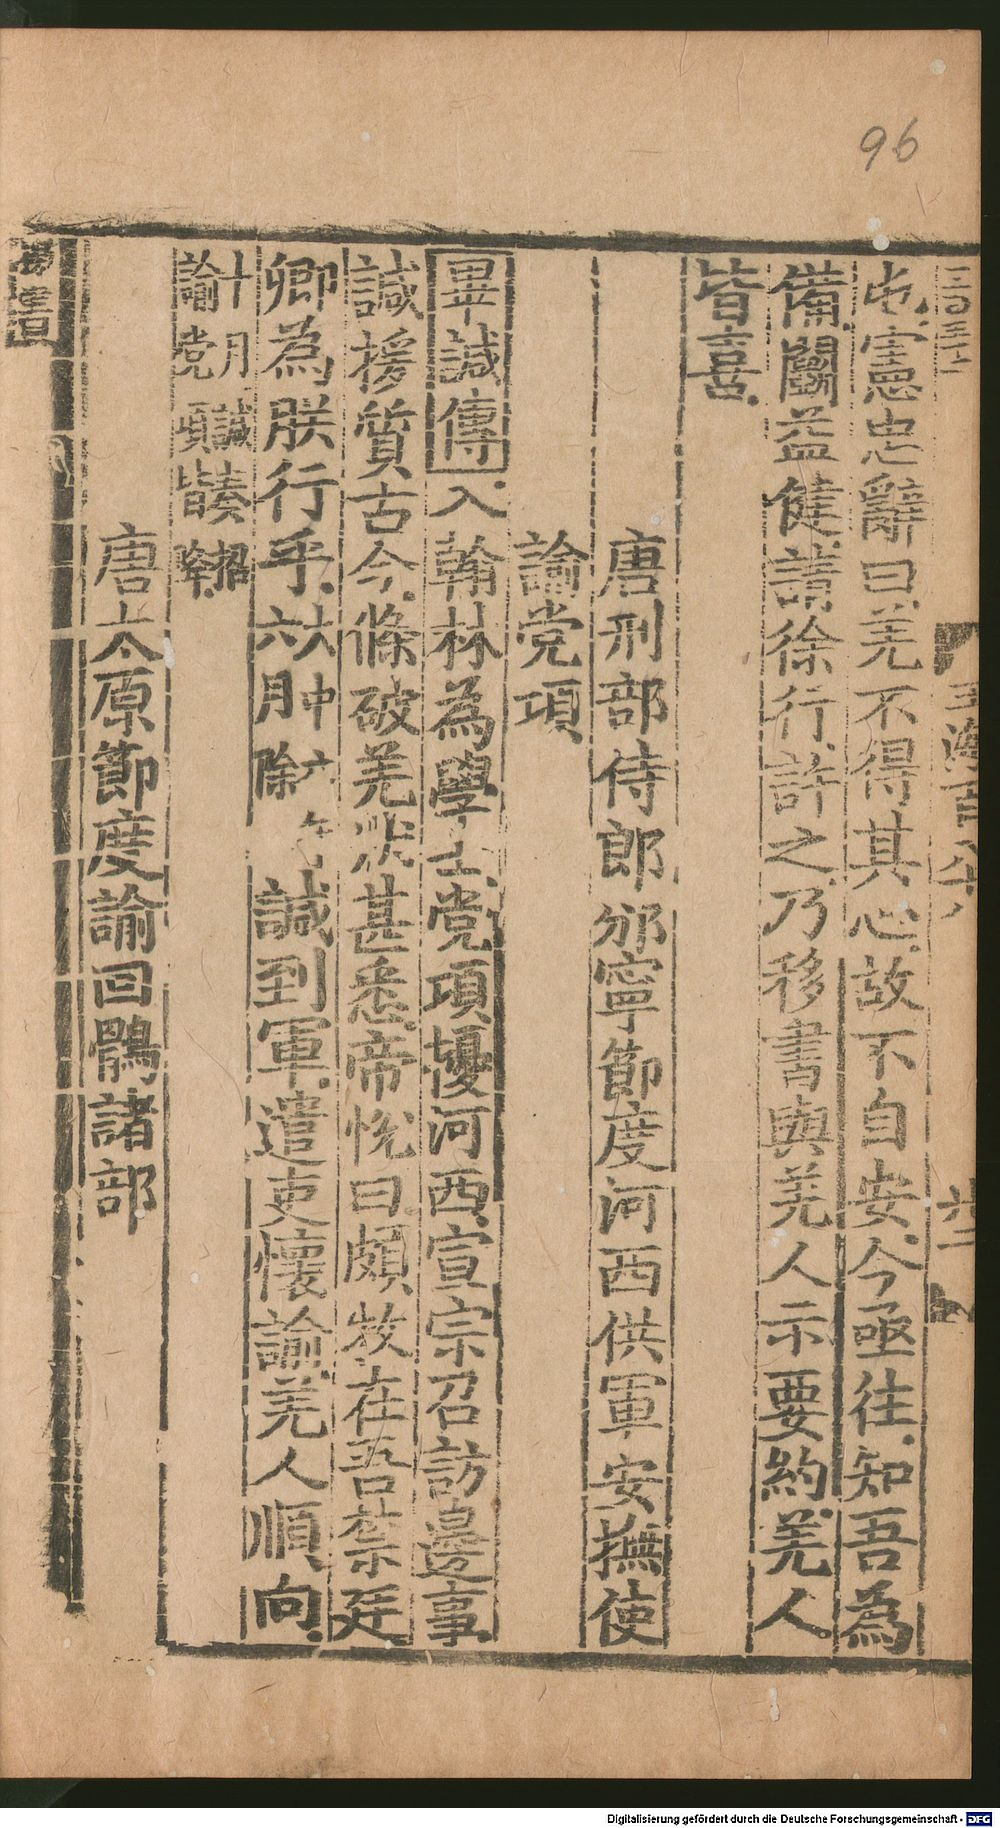 96
屯憲忠辭曰羌不得其心故不自安今亟往知吾為
備鬭益健請徐行許之乃移書與羌人示要約羌人
皆喜
唐刑部侍郎邠寧節度河西供軍安撫使
諭党項
畢諴傳入翰林為學士党項擾河西宣宗召訪邊事
諴援質古今條破羌狀甚悉帝悅曰頗牧在吾禁廷
卿為朕行乎
大中六
六月除
諴到軍遣吏懷諭羌人順向
十月諴奏招
諭党項皆降
唐太原節度諭回鶻諸部
Digitalisierung gefördert durch die Deutsche Forschungsgemeinschaft - DFG